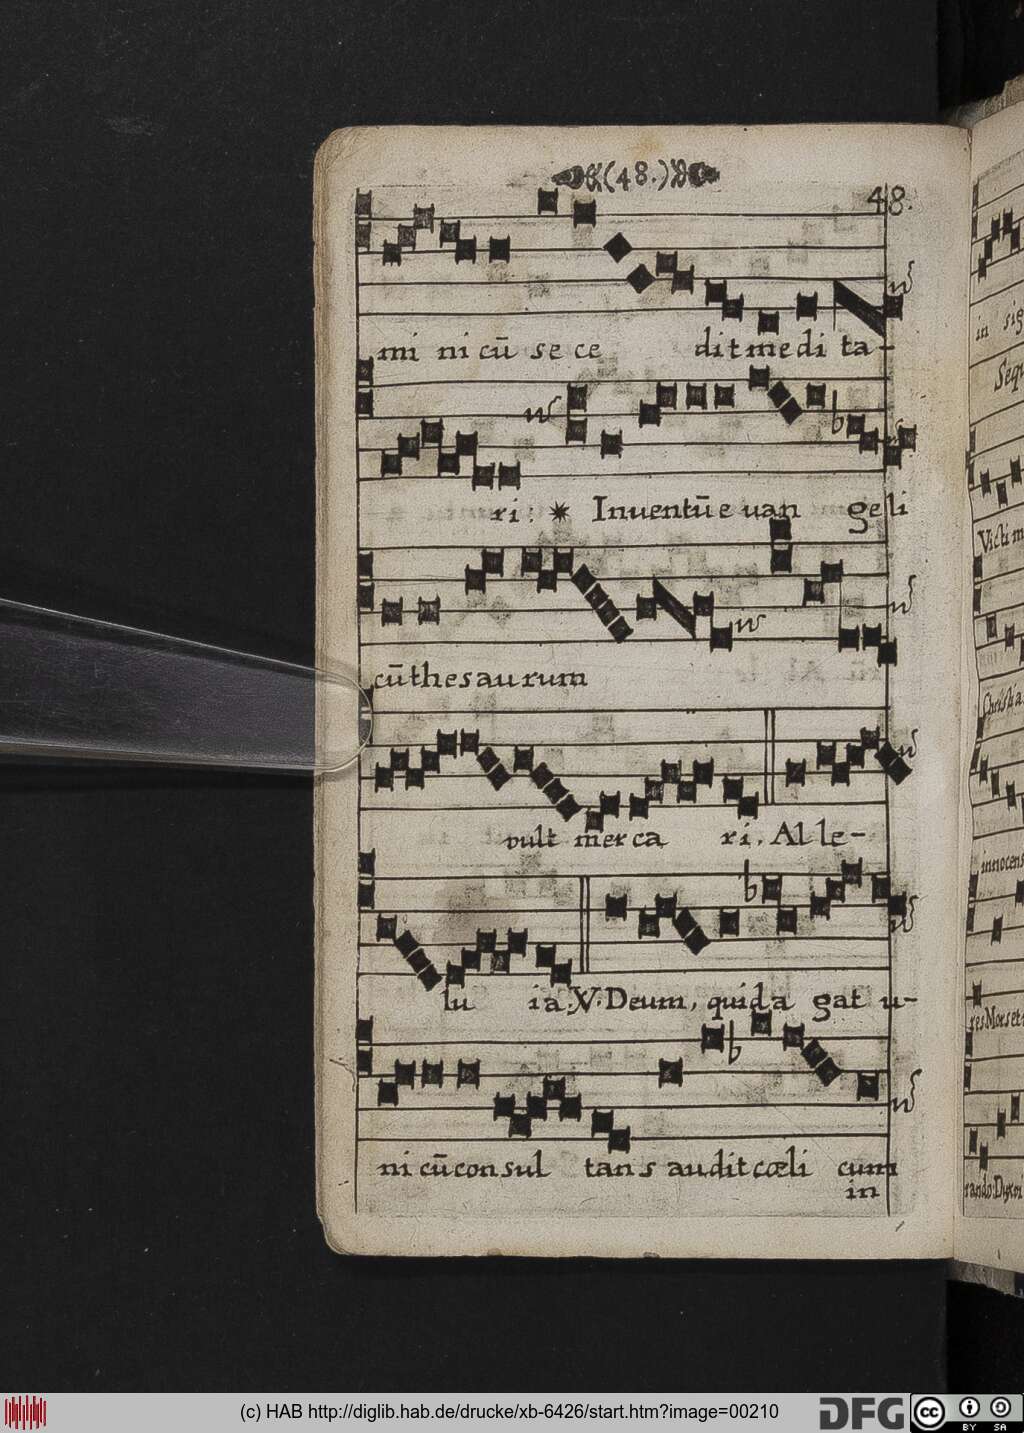 (48.)
48.
mi ni cū se ce dit medi ta-
ri. ✷ Inuentū e uan geli
cū thesaurum
vult merca ri. Al le-
lu ia. V. Deum, quid a gat u-
ni cū consul tans audit cœli cum
in
in sig
Sequ
Victi m
Christia
innocens
res Mors et
rando: Dux vi
(c) HAB http://diglib.hab.de/drucke/xb-6426/start.htm?image=00210
DFG
cc
BY SA